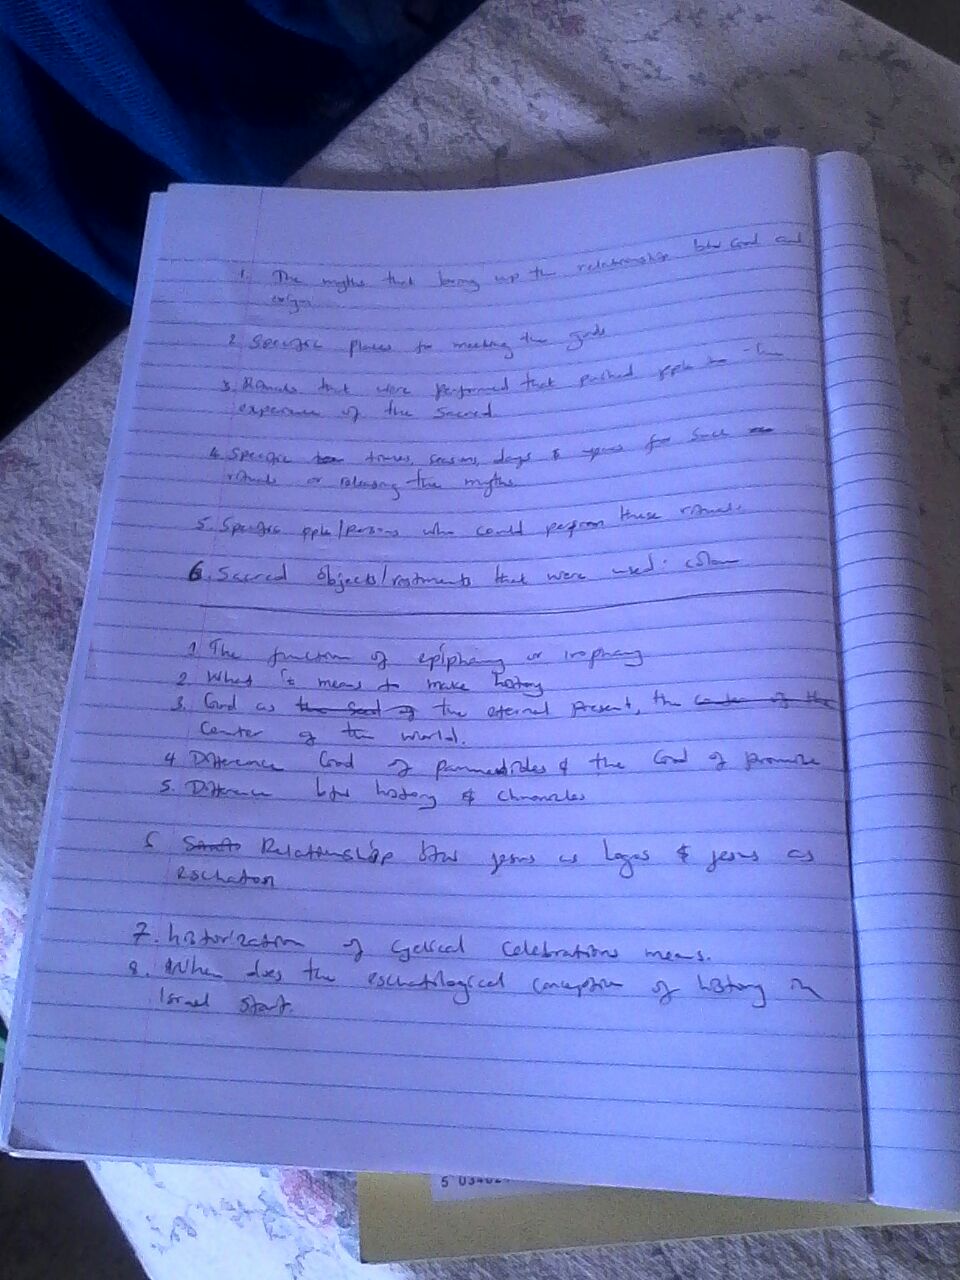 1. The myths that bring up the relationship btw God and
origin
2 Specific places for meeting the gods
3. Rituals that were performed that pushed pple to the
experience of the sacred
4. Specific times, seasons, days & years for such
rituals or releasing the myths
5. Specific pple/persons who could perform these rituals.
6. Sacred objects/ that were used.
1 The function of epiphany or
2 What it means to make history
3. God as the seat of the eternal present, the center of the
center of the world.
4 Difference God of & the God of promise
5. Difference btw history & chronicles
6 Relationship btw Jesus as Logos & Jesus as
Eschaton
7. historization of cyclical celebrations means.
8. When does the eschatilogical conception of history in
Israel start.
5 034